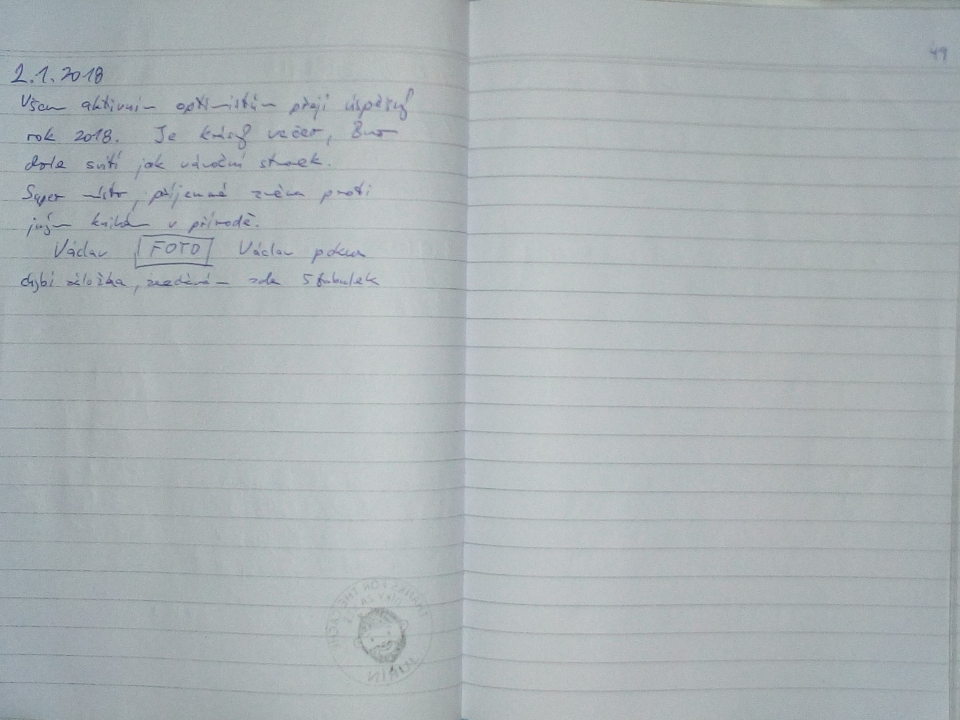 49
2.1.2018
Všem aktivním optimistům přeji úspěšný
rok 2018. Je krásný večer, Brno
dole svítí jak vánoční stromek.
Super místo, příjemná změna proti
jiným knihám v přírodě.
Václav FOTO Václav pokus
chybí záložka, zvedám zde 5 fabulek